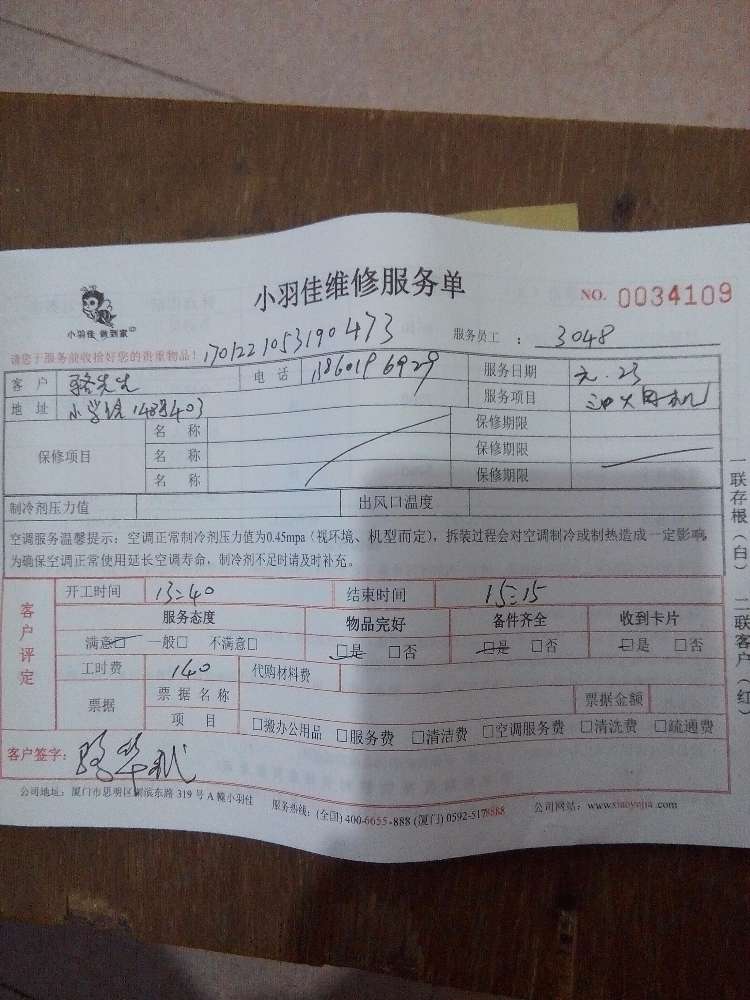 小羽佳维修服务单
NO. 0034109
小羽佳 做到家
170122105319 0473
服务员工 : 3048
请您于服务前收拾好您的贵重物品!
客 户 骆先生 电 话 服务日期 元.23
地 址 服务项目
保修项目 名 称 保修期限
名 称 保修期限
名 称 保修期限
制冷剂压力值 出风口温度
空调服务温馨提示:空调正常制冷剂压力值为0.45mpa(视环境、机型而定),拆装过程会对空调制冷或制热造成一定影响,
为确保空调正常使用延长空调寿命,制冷剂不足时请及时补充。
客户评定
开工时间 13:40 结束时间 15:15
服务态度 物品完好 备件齐全 收到卡片
满意□ 一般□ 不满意□ □是 □否 □是 □否 □是 □否
工时费 140 代购材料费
票据 票据名称 票据金额
项 目 □搬办公用品 □服务费 □清洁费 □空调服务费 □清洗费 □疏通费
客户签字:
公司地址:厦门市思明区湖滨东路 319 号 A 幢小羽佳 服务热线:(全国) 400-6655-888 (厦门) 0592-5178588 公司网站:www.xiaoyujia.com
一联存根(白) 二联客户(红)